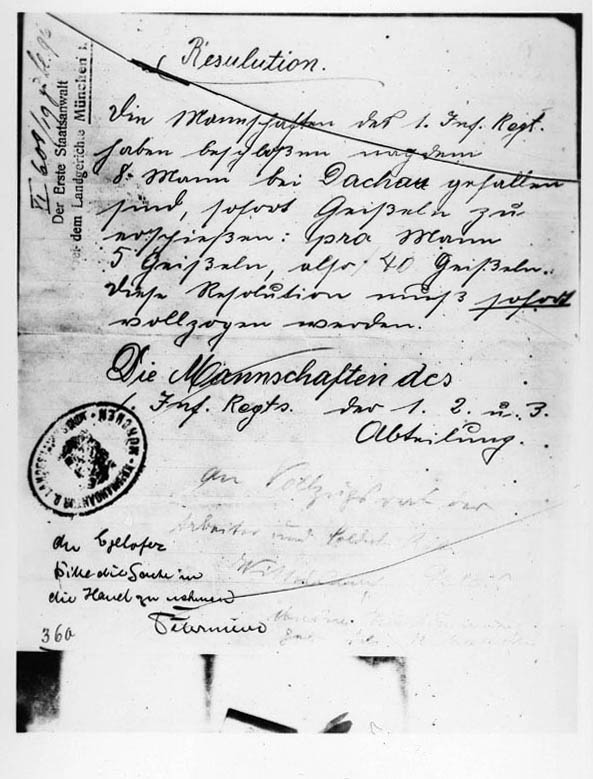 Resulution.
Der Erste Staatsanwalt
bei dem Landgerichte München I.
Die Mannschaften des 1. Inf. Regt.
haben beschloßen nachdem
8 Mann bei Dachau gefallen
sind, sofort Geißeln zu
erschießen: pro Mann
5 Geißeln, also 40 Geißeln.
Diese Resolution muß sofort
vollzogen werden.
Die Mannschaften des
1. Inf. Regts. der 1. 2. u. 3.
Abteilung.
An Vollzugsrat der
Arbeiter und Soldat
MÜNCHEN
An Eglhofer
bitte die Sache in
die Hand zu nehmen
360